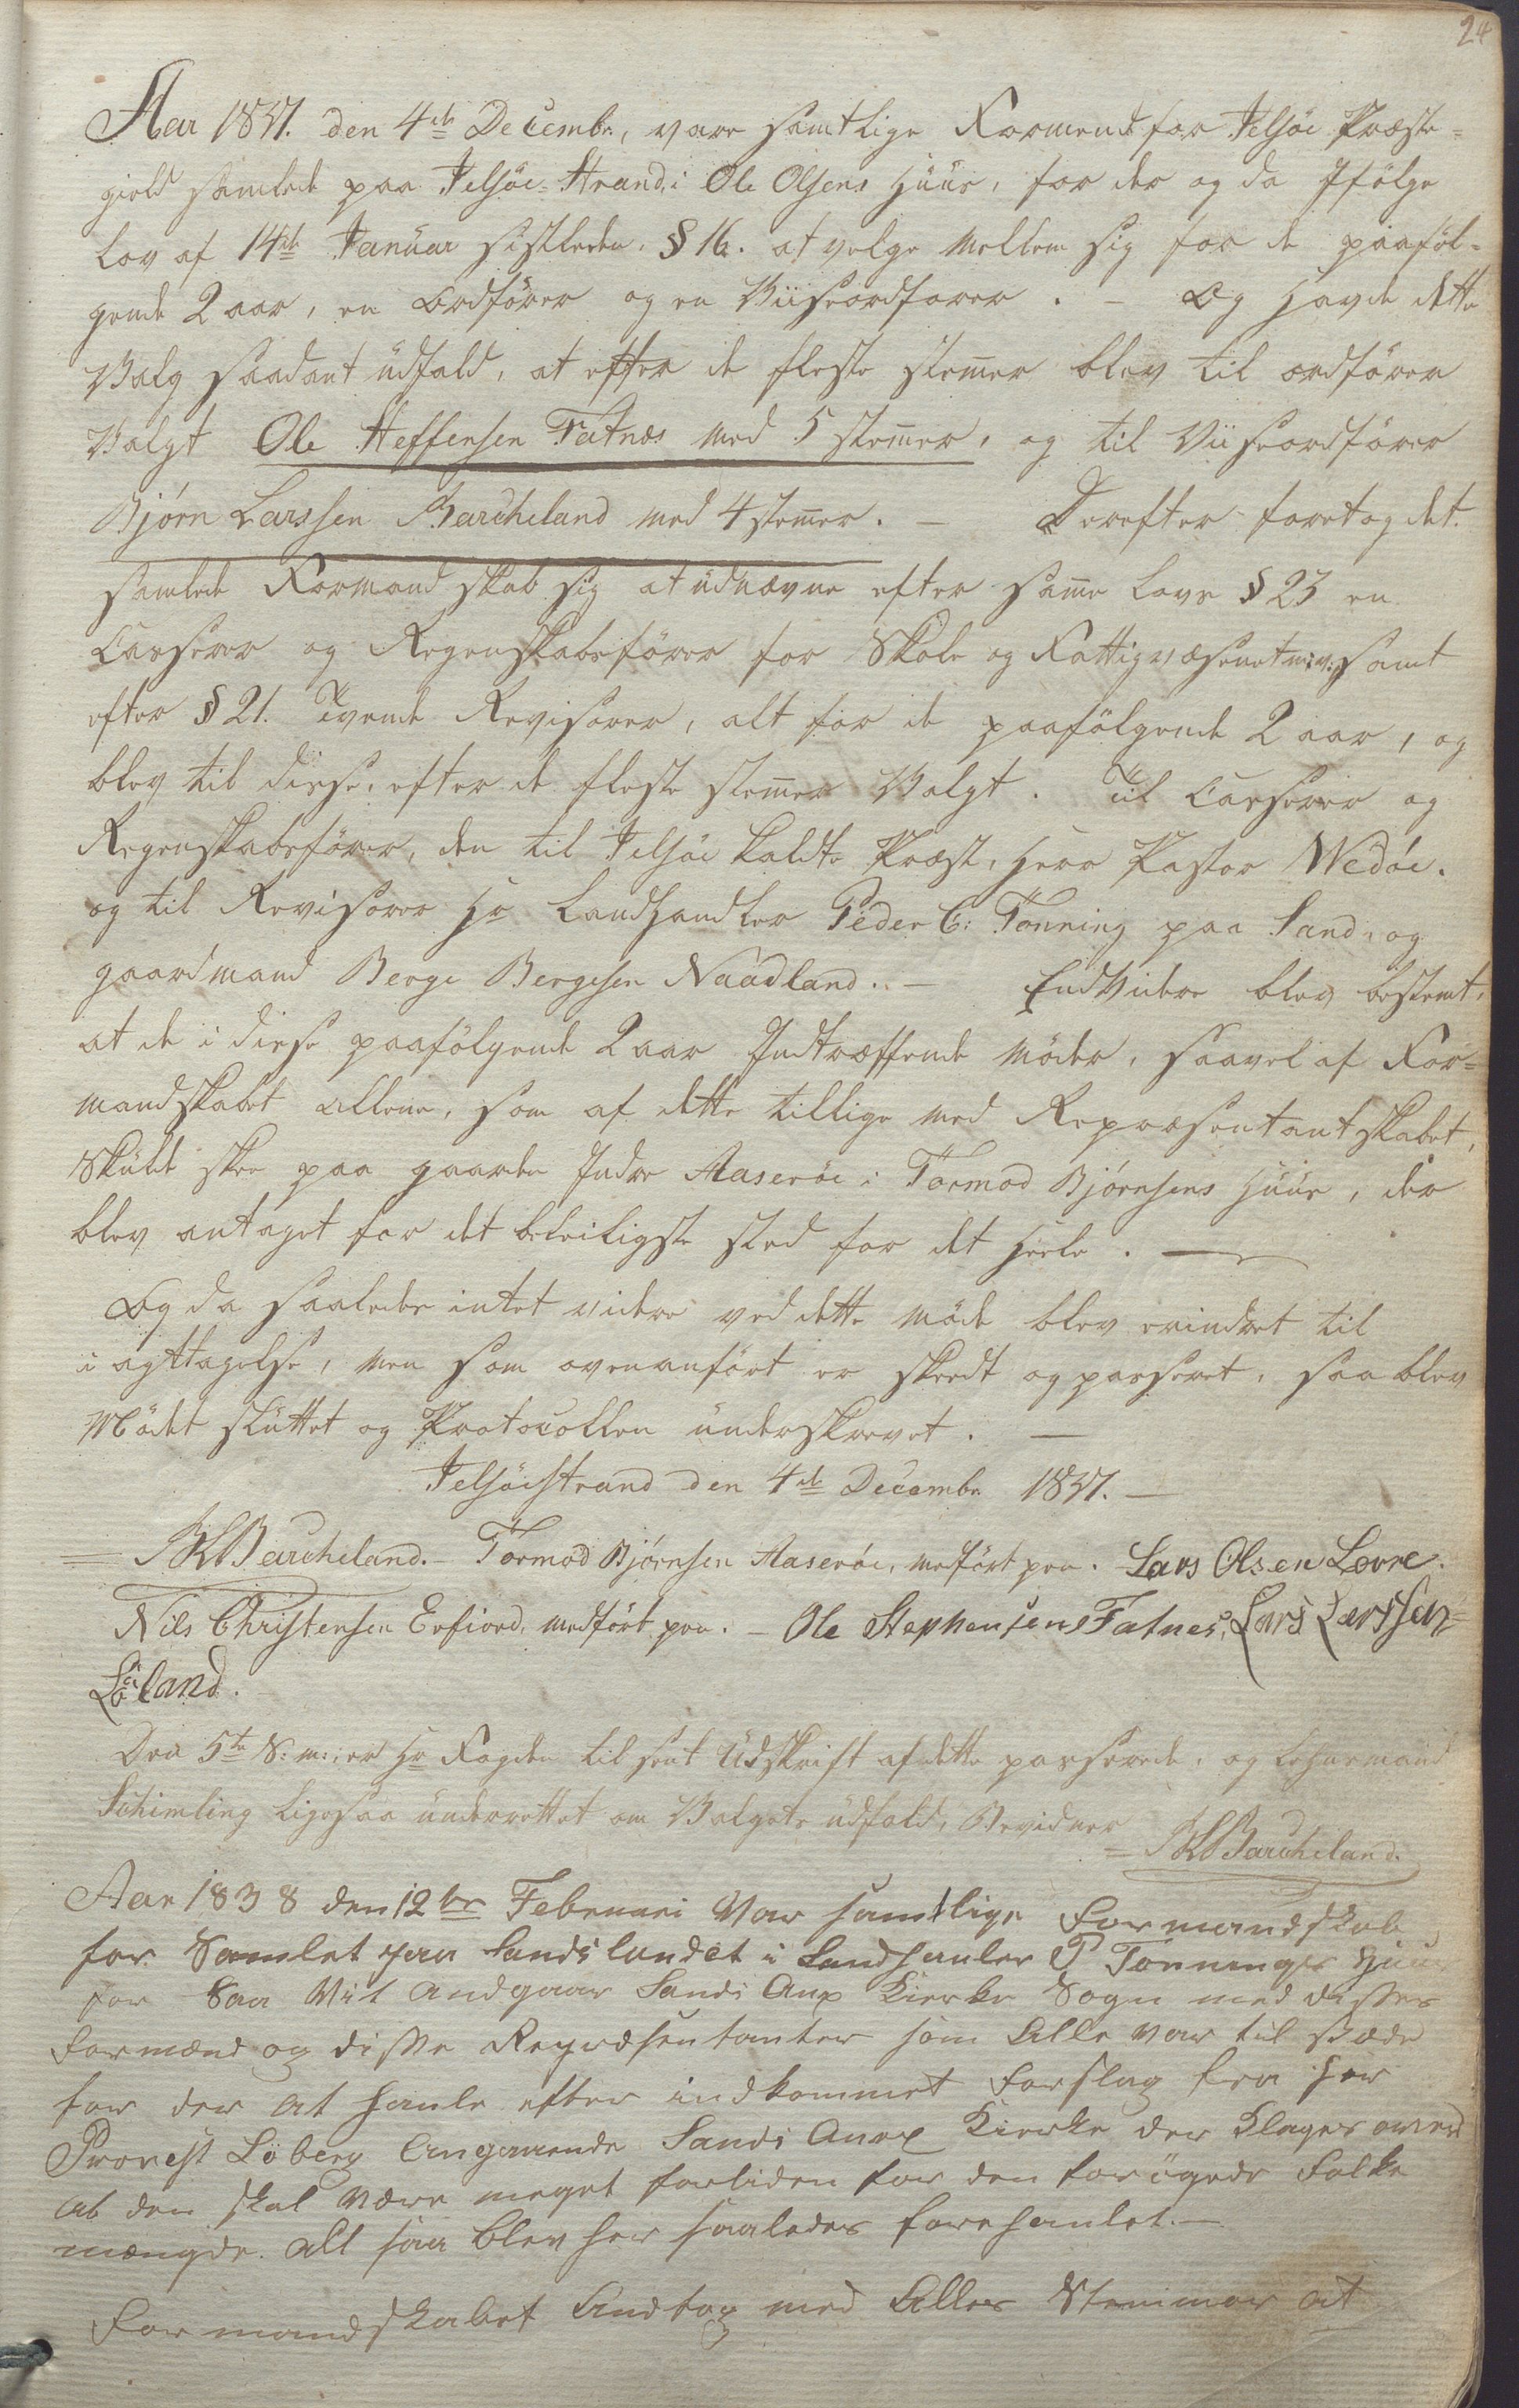 24
Aar 1837. den 4de Decembr, vare samtlige Formend for Jelsöe Præste-
gield samlede paa Jelsöe-Strand, i Ole Olsens Huus, for der og da Ifölge
Lov af 14de Januar sistleden, § 16. at velge Mellem sig for de paaföl-
gende 2 aar, en Ordförer og en Viiseordförer. - Og havde dette
Valg saadant üdfald, at efter de fleste stem̄er blev til ordförer
Valgt Ole Steffensen Fatnæs med 5 stem̄er, og til Viiseordförer
Bjørn Larssen Barcheland med 4 stem̄er. - Derefter foretog det
samlede Formandskab sig at üdnævne efter sam̄e Lovs § 23 en
Casserer og Regenskabsförer for Skole og Fattigvæsenet m: v: samt
efter § 21. Tvende Revisorer, alt for de paafölgende 2 aar, og
blev til disse, efter de fleste stem̄er Valgt. Til Casserer og
Regenskabsförer, den til Jelsöe kaldte Præst, Herr Pastor Wedöe.
og til Revisorer Hr Landhandler Peder C: Tönning paa Sand, og
gaardmand Berge Bergesen Naadland. - Endvidere blev bestemt,
at de i disse paafölgende 2 aar Indtræffende Möder, saavel af For-
mandskabet allene, som af dette tillige med Repræsentantskabet,
Skülde skee paa gaarden Indre Aaseröe i Tormod Bjørnsens Hüüs, der
blev antaget for det beleiligste sted for det Heele. -
Og da saaledes intet videre ved dette Möde blev erindret til
iagttagelse, men som ovenanfört er skeedt og passeret, saa blev
Mödet slüttet og Protocollen ünderskrevet. -
Jelsöestrand den 4de Decembr 1837. -
BLBarcheland. - Tormod Bjørnsen Aaseröe, medfört pen. Lars Olsen Lovre.
Nils Christensen Erfiord, medfört pen. - Ole Stephensen Fatnes, Lars Larssen
Löland.
Den 5te S: m:, er Hr Fogden til sent Üdskrift af dette passerede, og Lehnsmand
Schimling ligesaa ünderrettet om Valgets üdfald, Bevidner
= BLBarcheland.
Aar 1838 den 12te Februari Var samtlige Formandskab
for Samlet paa Sandslandet i Landhanler P Tönninges Huus
for Saa Vit Andgaar Sands Anx Kierke Sogn med disses
formænd og disse Repræsentanter som Alle var til stæde
for der at hanle efter indkommet forslag fra Her
Provest Löberg Angaaende Sands Anex Kierke der Klages over
at den skal være meget forliden for den forögede folke
mængde. alt saa blev her saaledes forehanlet. -
Formandskabet Andtog med Alles Stemmer at